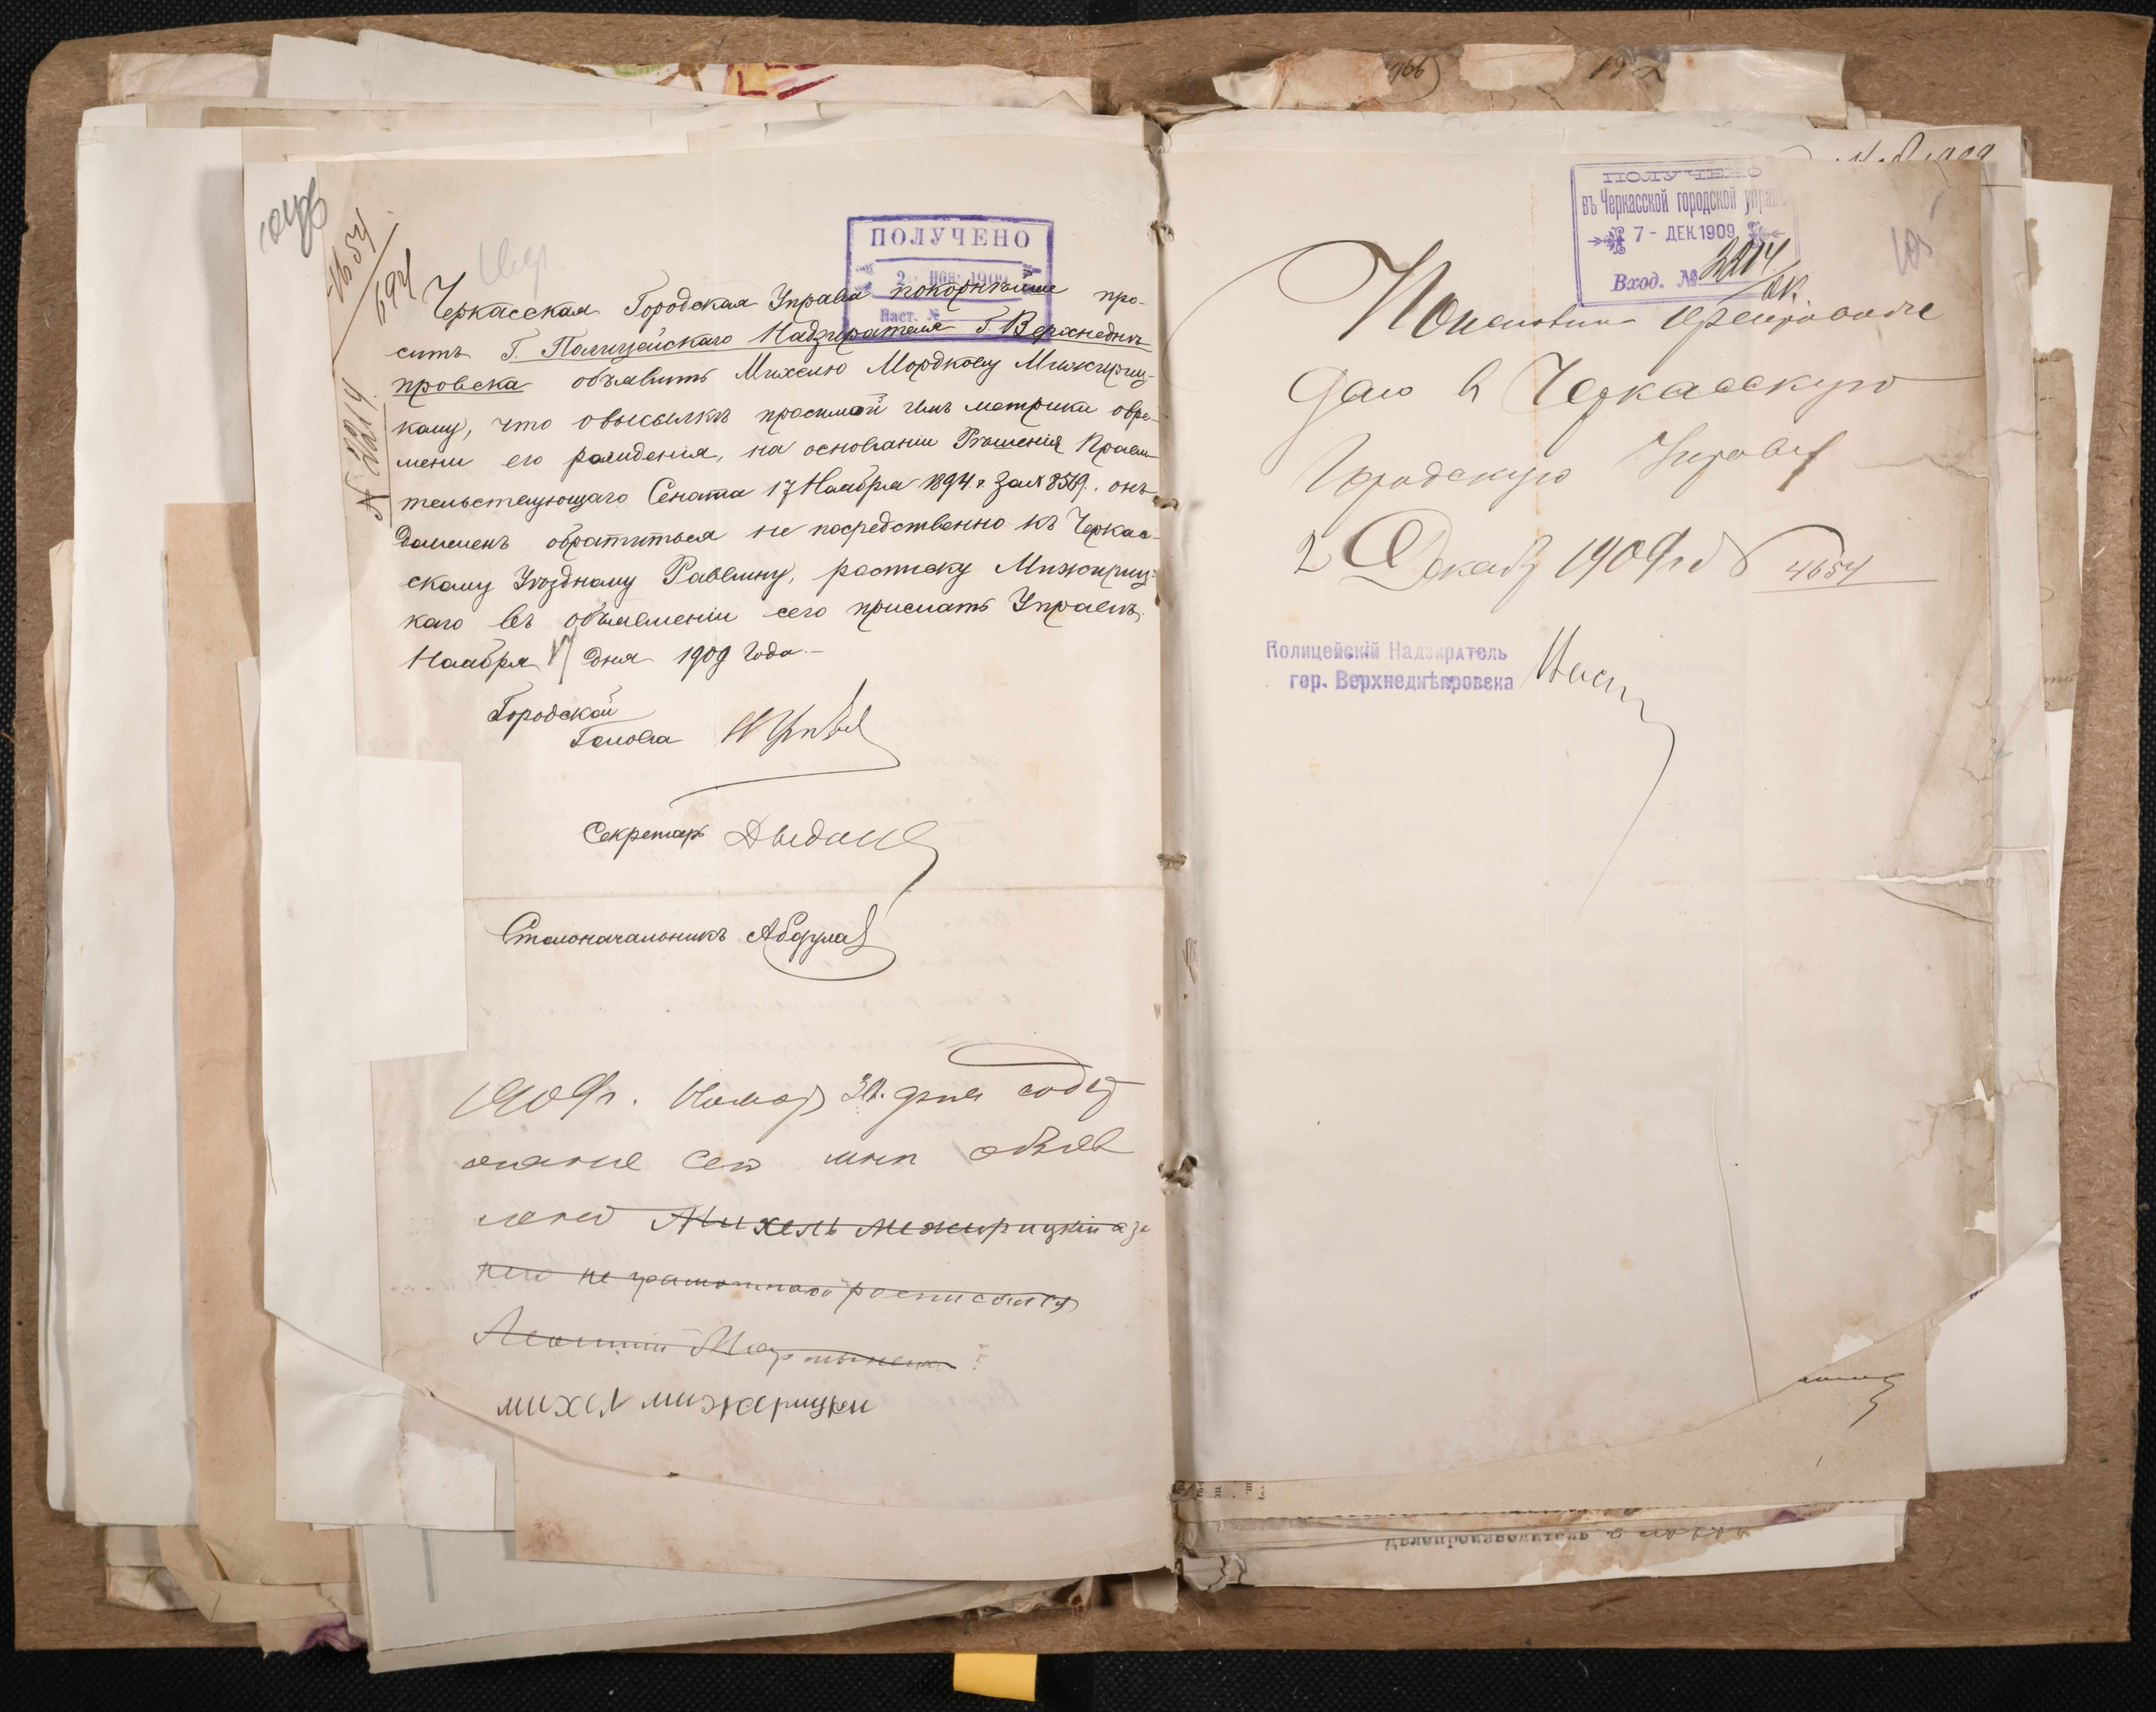 4654
694
№ 2219
ПОЛУЧЕНО
Наст. №
Черкасская Городская Управа покорнѣйше про-
ситъ Г. Полицейскаго Надзирателя Г. Верхнеднѣ-
провска объявить Михелю Мордкову Мижириц-
кому, что о высылкѣ просимой имъ метрики о вре-
мени его рожденія, на основаніи Рѣшенія Прави-
тельствующаго Сената 17 Ноября 1894 г. за № 8519. онъ
долженъ обратиться не посредственно къ Черкас-
скому Уѣздному Раввину, росписку Мижириц-
каго въ объявленіи сего прислать Управѣ.
Ноября 17 дня 1909 года.
Городской
Голова
Секретарь
Столоначальникъ
1909 г. Нояб 30. дня содер
жание сего мнѣ объяв
лено Михель Межирицкій а за
него не грамотнаго росписался
михел мижерицки
ПОЛУЧЕНО
въ Черкасской городской управѣ
7 - ДЕК. 1909
Вход. №
По исполнении препровож
даю в Черкасскую
Городскую Управу
2 Декаб 1909 г. № 4654
Полицейскій Надзиратель
гор. Верхнеднѣпровска
Делопроизводитель